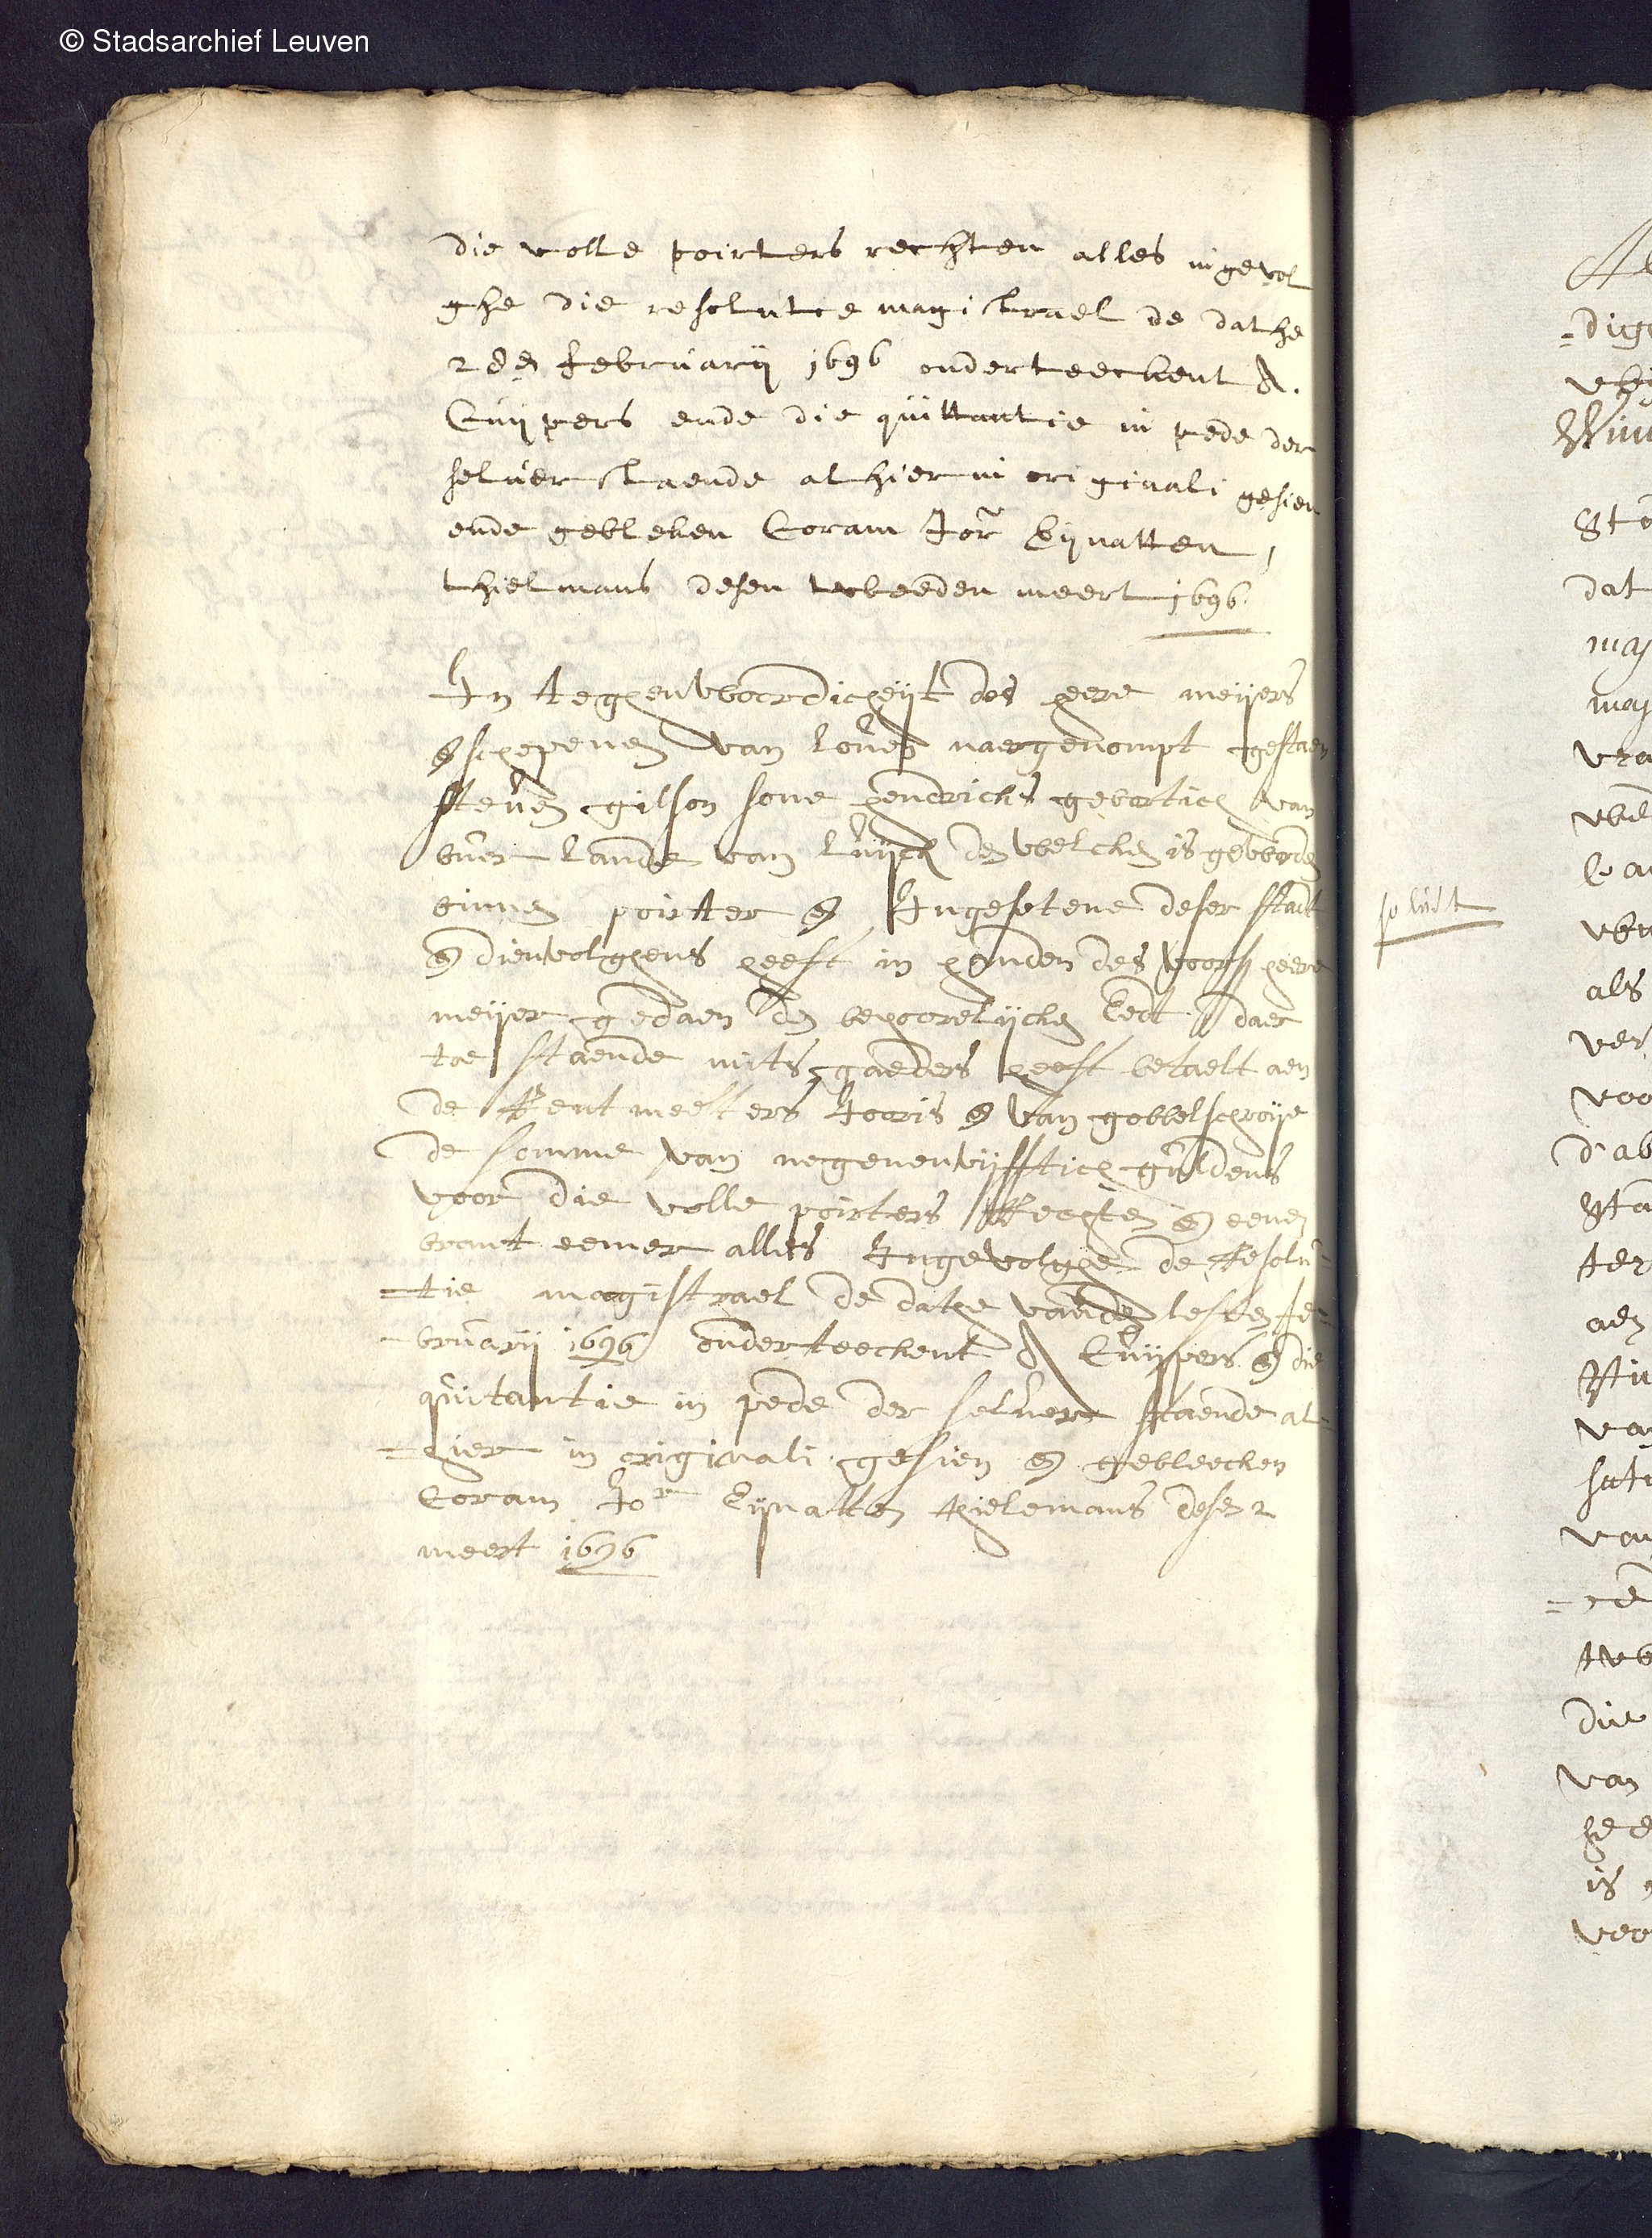 © Stadsarchief Leuven
die volle poirters rechten alles ingevol
ghe die resolutie magistrael de dathe
28en february 1696 onderteeckent A.
Cuypers ende die quittantie in pede der
selver staende alhier in originali gesien
ende gebleken Coram Jor Eynatten,
thielmans desen tweeden meert 1696
In teghenwoordicheyt des heere meyers
en schepenen van loven naergenompt gestaen
steven gilson sone hendricks gebortich van
lande van luyck den welcken is geworden
binnen poirter en Ingesetene deser stadt
en dienvolghens heeft in handen des voors heere
meyer gedaen den behoorelycken Eedt daer
toe staende mitsgaeders heeft betaelt aen
de Rentmeesters Jooris en van gobbelschroye
de somme van negenenvyfftich guldens
voor die volle poirters Rechten en eenen
brant eemer alles Ingevolghe de Resolu-
-tie magistrael de dathe vanden lesten fe-
-bruary 1696 onderteeckent A Cuypers en die
quitantie in pede der selver staende al-
-hier in originali gesien en gebleecken
Coram Jor Eynatten thielemans desen 2
meert 1696
solvit
dat
als
van
is